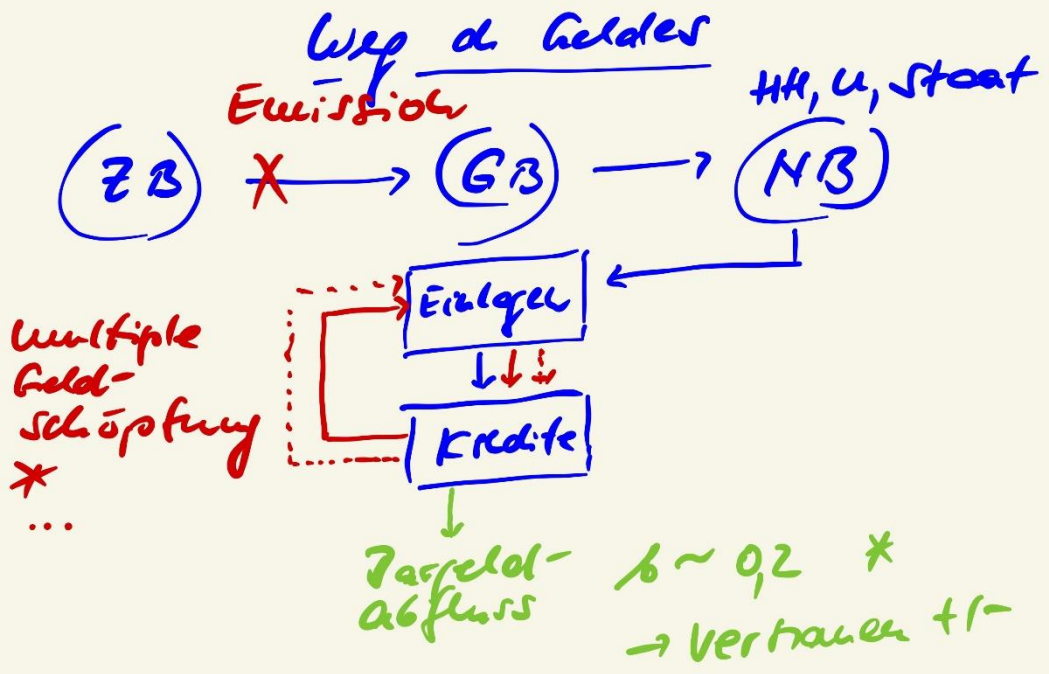 Weg d Geldes
Emission
HH, U, Staat
ZB
GB
NB
Einlagen
multiple
Geld-
schöpfung
*
...
Kredite
Bargeld-
abfluss
b ~ 0,2 *
→ Vertrauen +/-